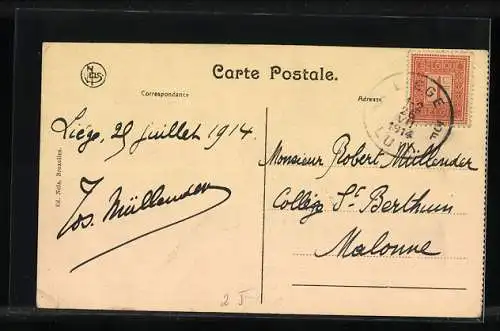 Carte Postale.
Correspondance
Adresse
Liége, 29 juillet 1914.
Jos. Müllender
Monsieur Robert Müllender
Collège St Berthuin
Malonne
Ed. Nels, Bruxelles.
1914